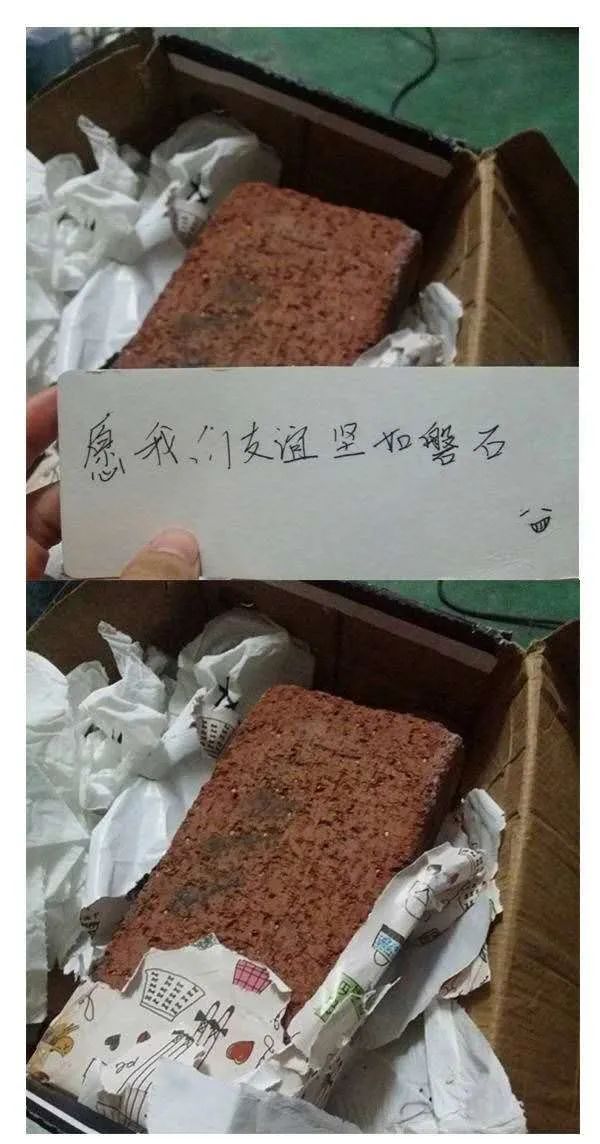 愿我们友谊坚如磐石